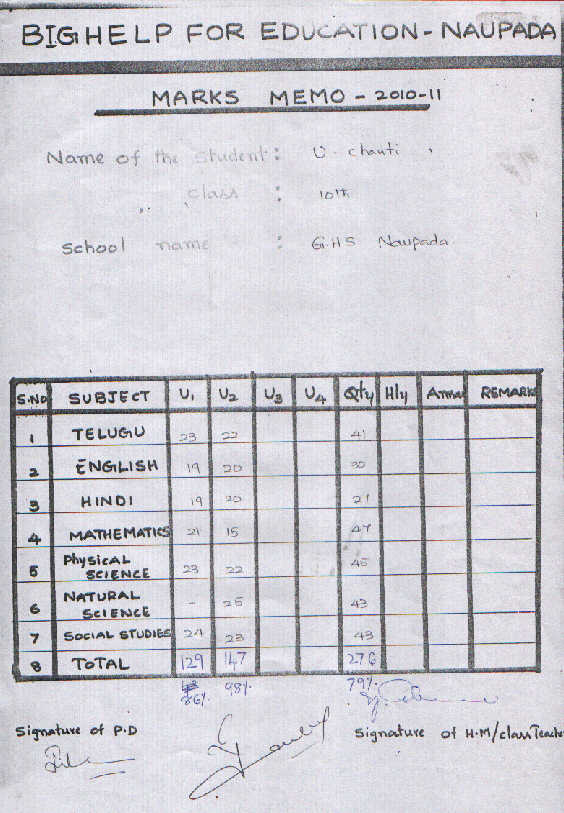 BIGHELP FOR EDUCATION - NAUPADA
MARKS MEMO - 2010-11
Name of the Student : U. Chanti
,, class : 10th
School name : G.H.S Naupada
S.No SUBJECT U1 U2 U3 U4 Qty Hly Annu REMARKS
1 TELUGU 23 22 41
2 ENGLISH 19 20 32
3 HINDI 19 20 21
4 MATHEMATICS 21 15 47
5 Physical SCIENCE 23 22 45
6 NATURAL SCIENCE - 25 43
7 SOCIAL STUDIES 24 23 43
8 TOTAL 129 147 276
86% 98% 79%
Signature of P.D Signature of H.M/class Teache